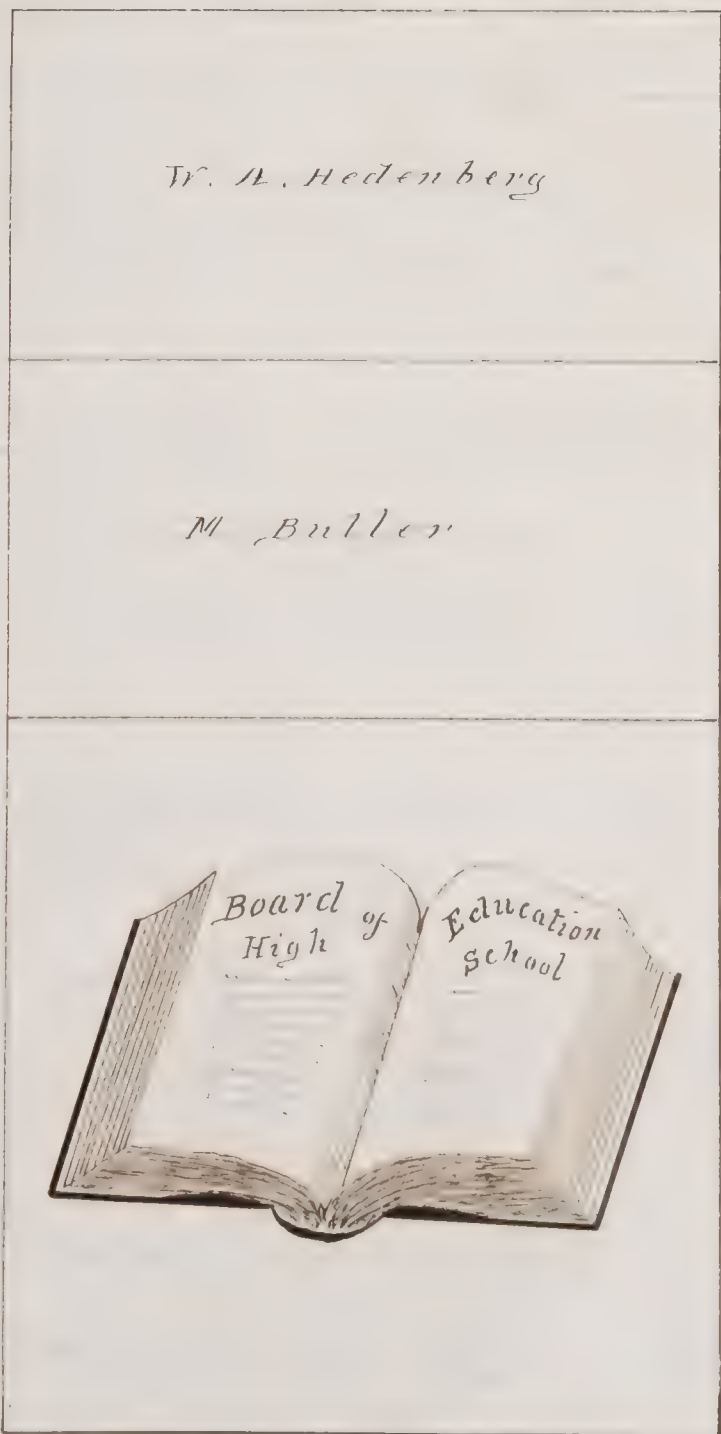 W. A. Hedenberg
M Butler
Board of Education
High School